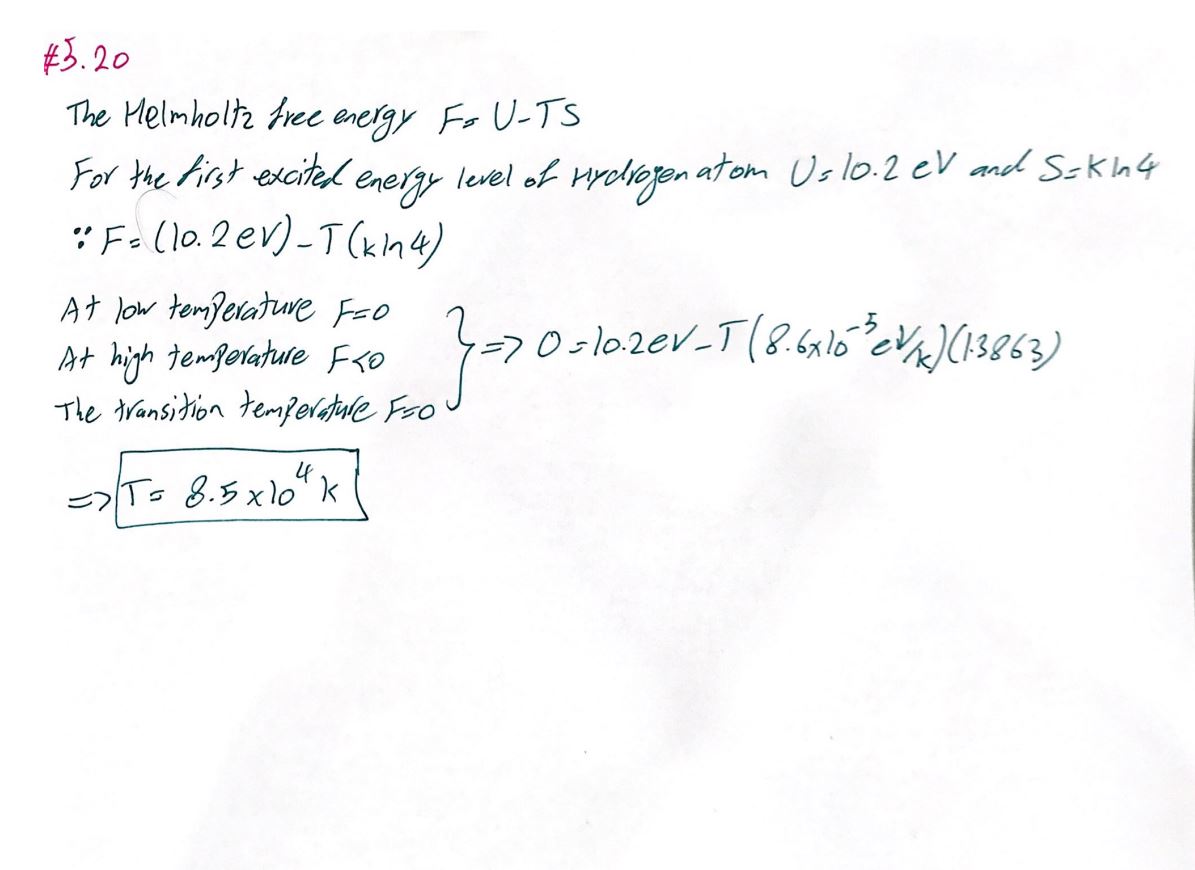 #5.20
The Helmholtz free energy F = U-TS
For the first excited energy level of Hydrogen atom U = 10.2 eV and S = k ln 4
∵ F = (10.2 eV) - T(k ln 4)
At low temperature F=0
At high temperature F<0
The transition temperature F=0
} => 0 = 10.2 eV - T(8.6x10⁻⁵ eV/k)(1.3863)
=> T = 8.5 x 10⁴ k